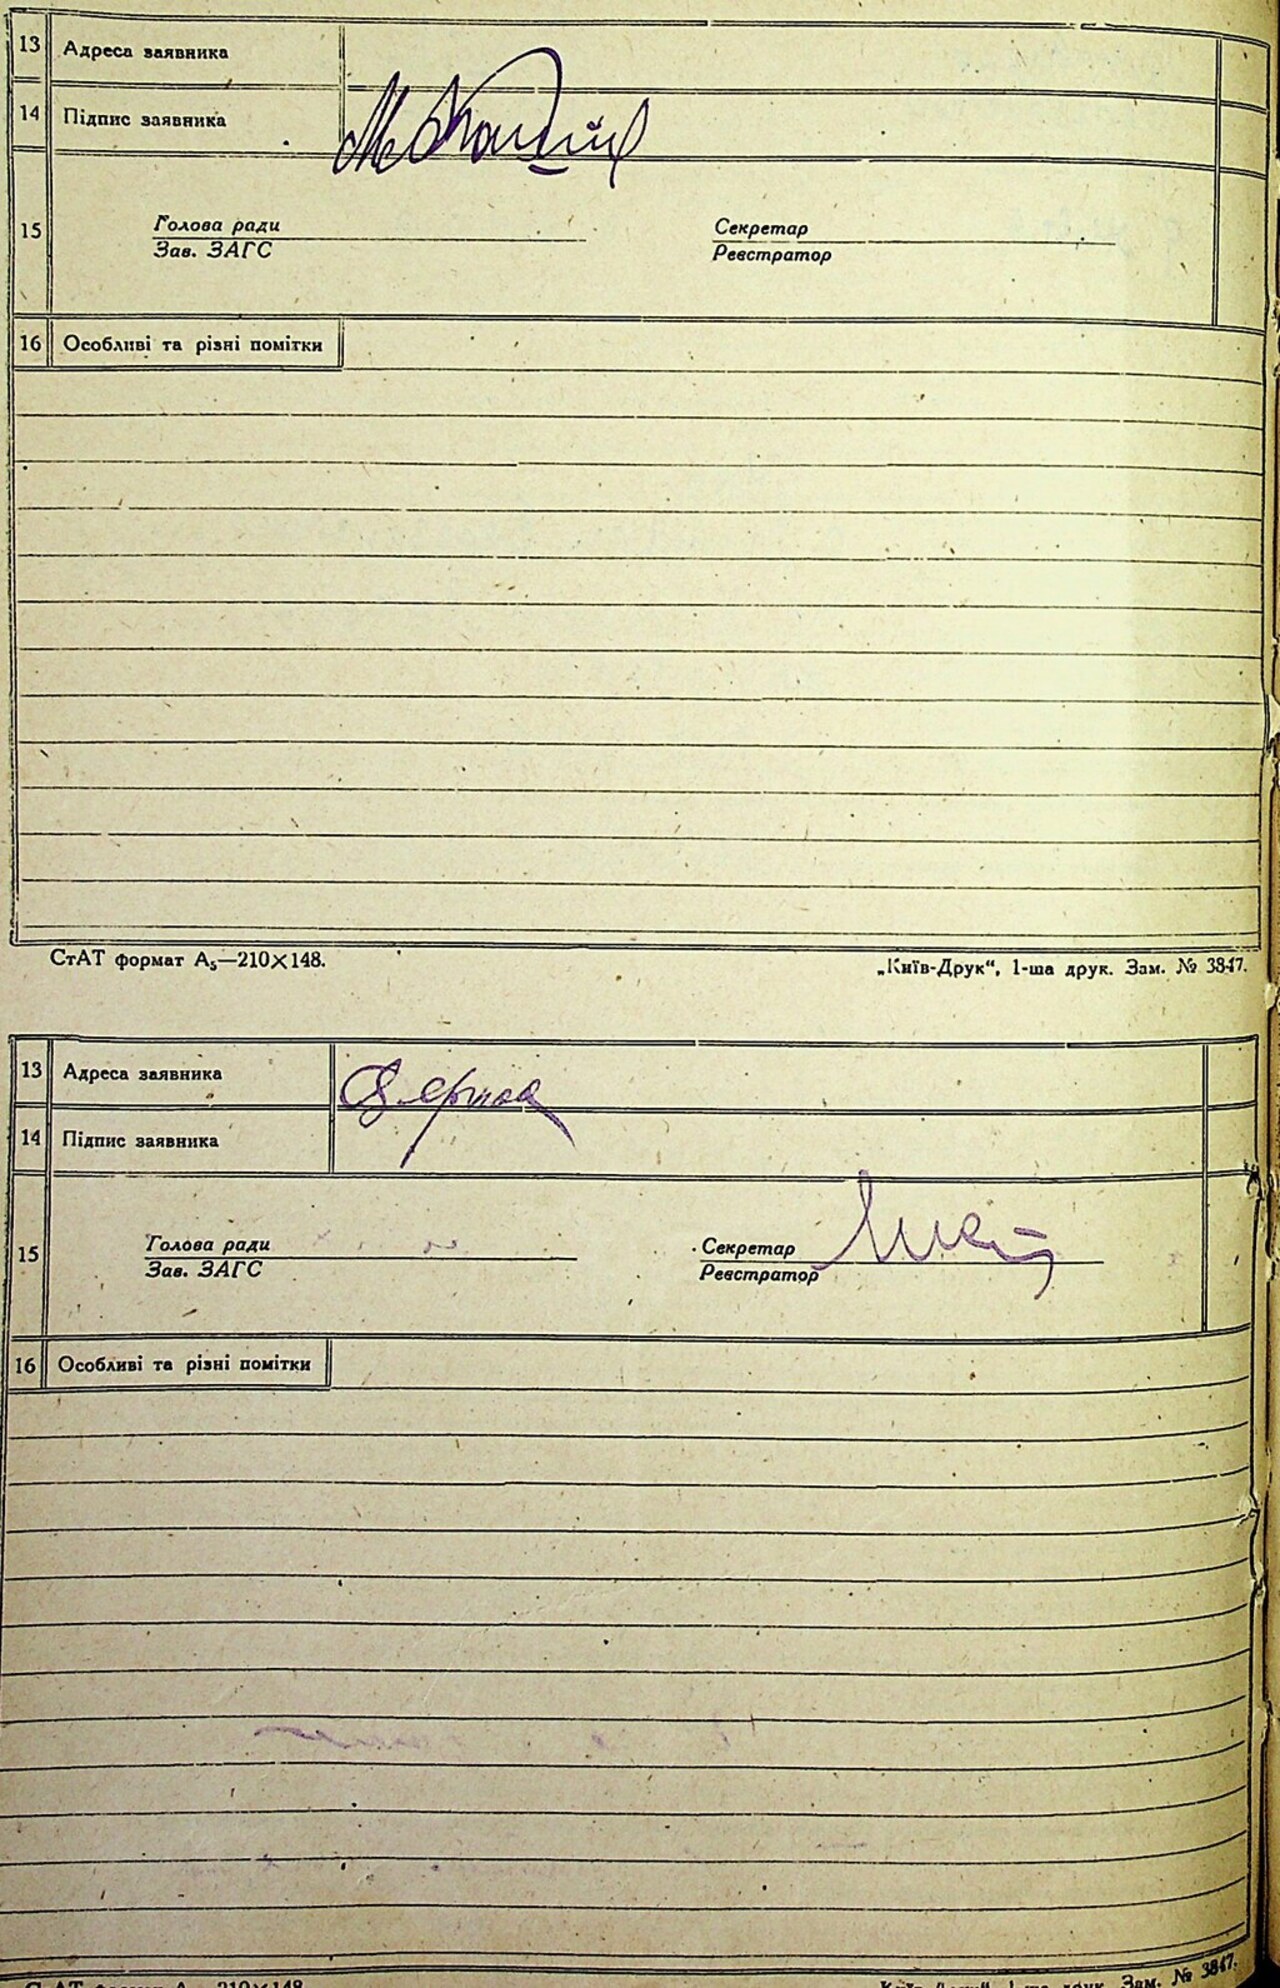 13 Адреса заявника
14 Підпис заявника
15 Голова ради Секретар
Зав. ЗАГС Реєстратор
16 Особливі та різні помітки
СтАТ формат А₅—210×148. „Київ-Друк“, 1-ша друк. Зам. № 3847.
13 Адреса заявника
14 Підпис заявника
15 Голова ради Секретар
Зав. ЗАГС Реєстратор
16 Особливі та різні помітки
СтАТ формат А₅—210×148. „Київ-Друк“, 1-ша друк. Зам. № 3847.